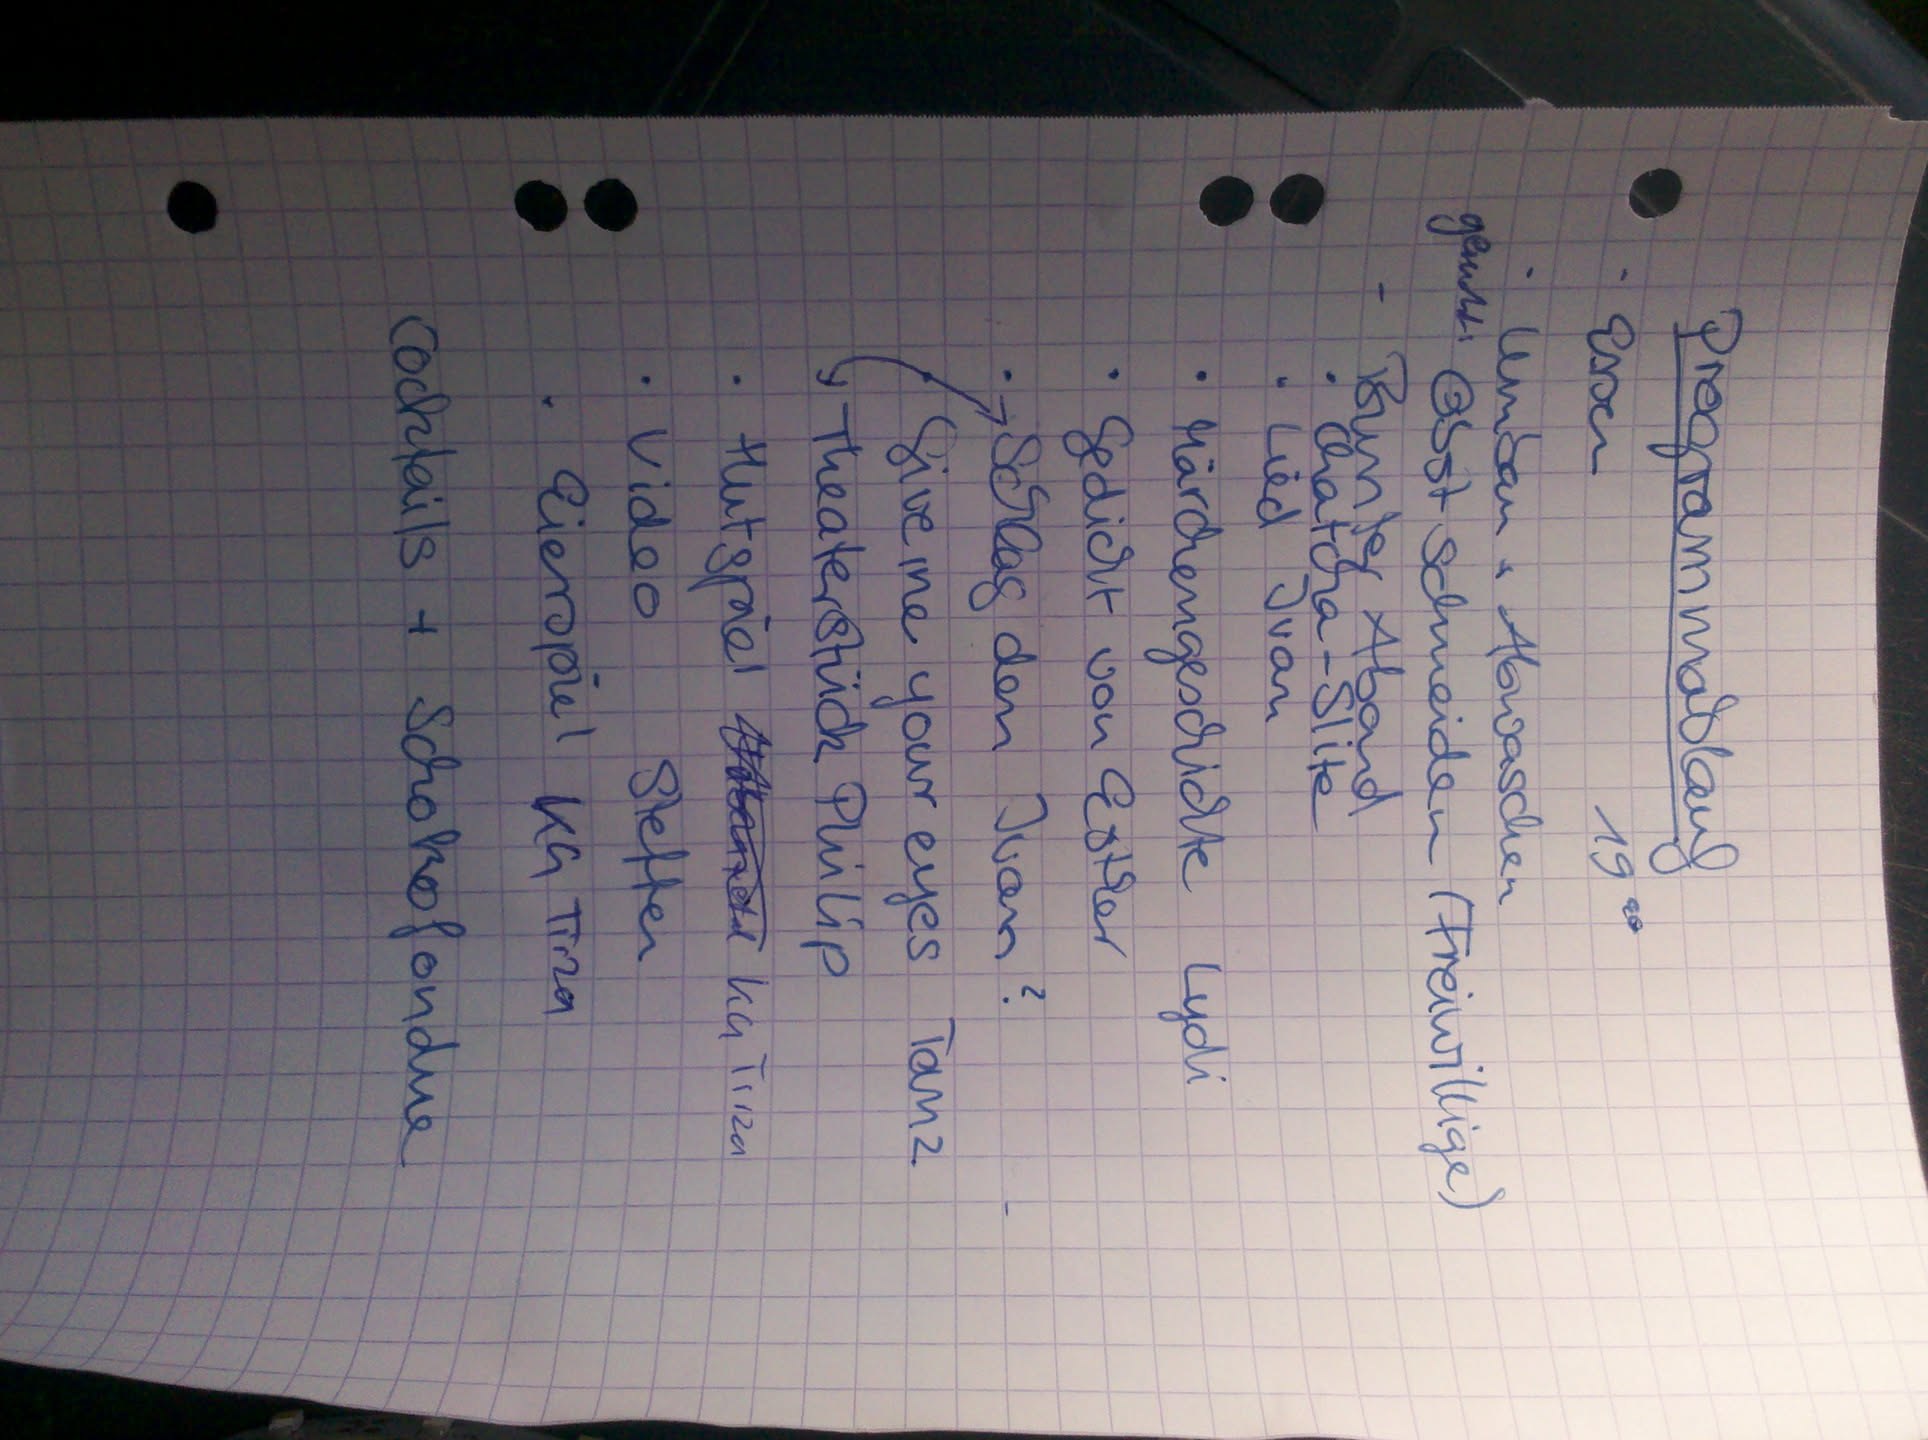 Programmablauf
· Essen 19⁰⁰
· Umbau + Abwaschen
Obst schneiden (Freiwillige)
- Bunter Abend
· Chatcha-Slite
· Lied Ivan
· Märchengeschichte Lydi
· Gedicht von Esther
· → Schlag den Ivan? -
· Give me your eyes Tanz
Theaterstück Philip
· Hutspiel Ka Tirza
· Video Steffen
· Eierspiel Ka Tirza
Cocktails + Schokofondue